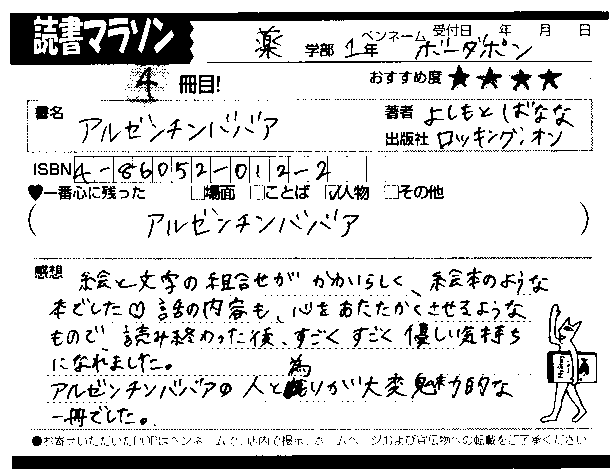 読書マラソン
薬 学部 1年 ペンネーム ボーダポン 受付日 年 月 日
4 冊目! おすすめ度 ★★★★
書名 アルゼンチンババア 著者 よしもとばなな
出版社 ロッキング・オン
ISBN 4-86052-012-2
♥一番心に残った □場面 □ことば ☑人物 □その他
( アルゼンチンババア )
感想 絵と文字の組合せがかわいらしく、絵本のような
本でした♡ 話の内容も、心をあたたかくさせるような
もので、読み終わった後、すごくすごく優しい気持ち
になれました。
アルゼンチンババアの人と為りが大変魅力的な
一冊でした。
●お寄せいただいたPOPはペンネームで、店内で掲示、ホームページおよび宣伝物への転載をご了承ください